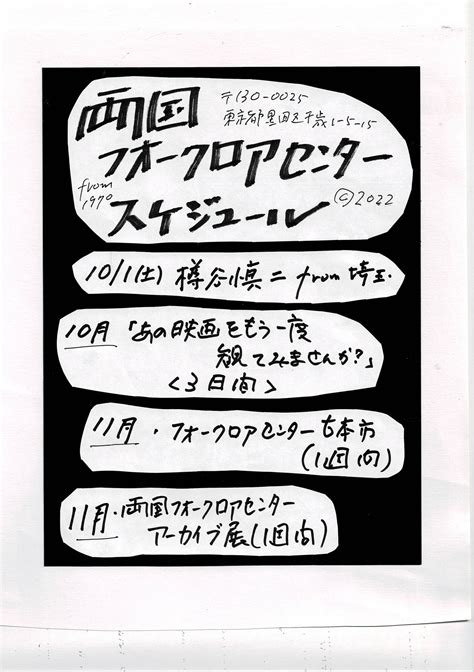 両国
〒130-0025
東京都墨田区千歳1-5-15
フォークロアセンター
from
1970
スケジュール
©2022
10/1(土) 樽谷慎二 from 埼玉.
10月「あの映画をもう一度
観てみませんか?」
<3日間>
11月・フォークロアセンター古本市
(1週間)
11月・両国フォークロアセンター
アーカイブ展(1週間)